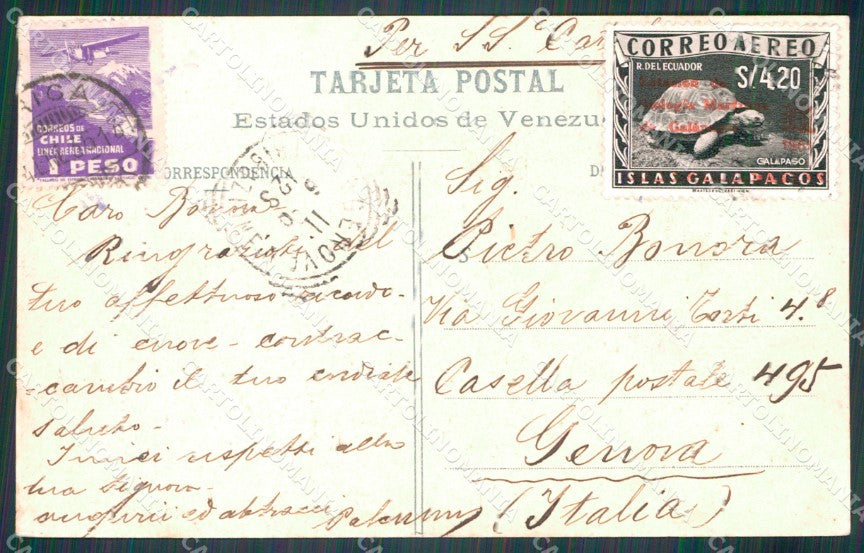 Per SS "Ca
TARJETA POSTAL
Estados Unidos de Venezu
CORREOS DE
CHILE
LINEA AEREA NACIONAL
1 PESO
CORREO AEREO
R. DEL ECUADOR
S/4,20
GALAPAGO
ISLAS GALAPAGOS
ORRESPONDENCIA
D
GENOVA
Caro Bonora
Ringrazioti del
tuo affettuoso ricordo-
e di cuore contrac-
-cambio il tuo cordiale
saluto-
I miei rispetti alla
tua Signora-
auguri ed abbracci
Sig.
Pietro Bonora
Via Giovanni Torti 4.8
Casella postale 495
Genova
(Italia)
CARTOLINOMANIA